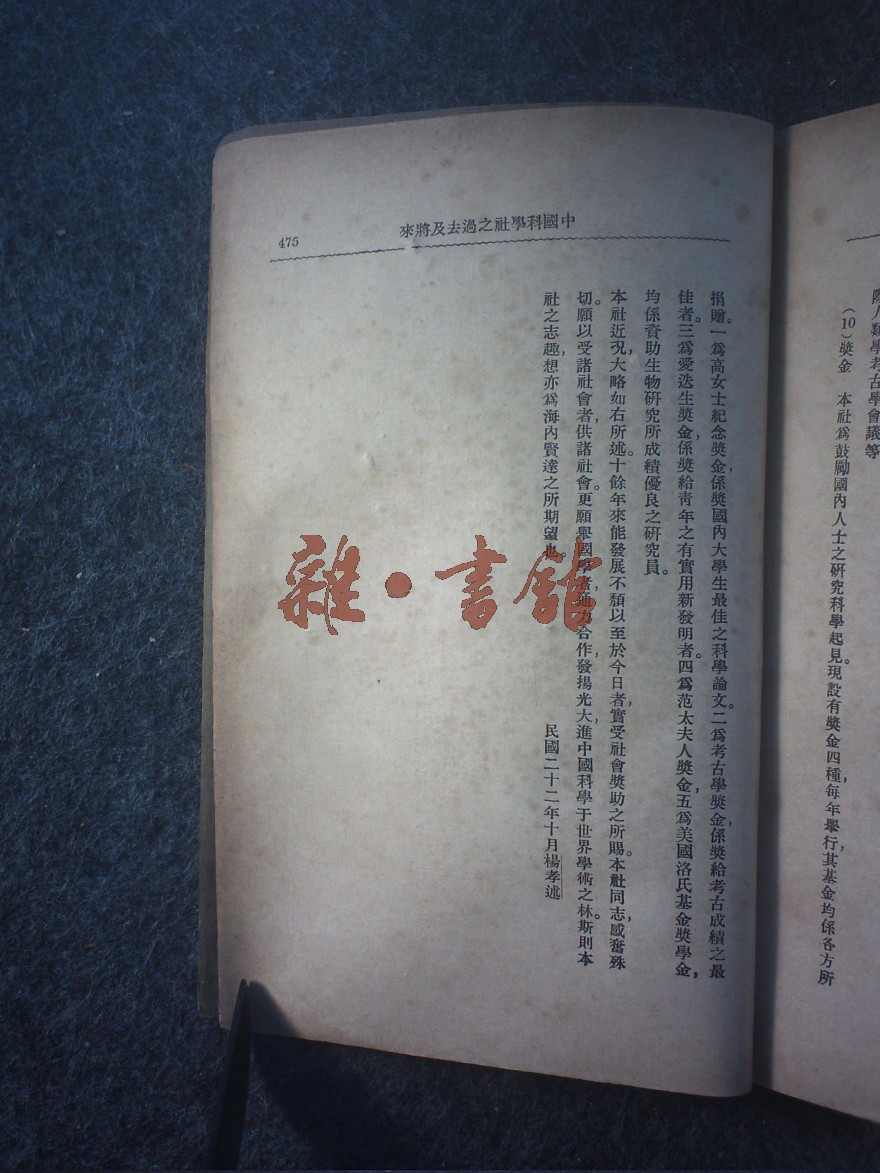 人類學考古學會議等
（10）獎金　本社爲鼓勵國內人士之研究科學起見。現設有獎金四種，每年舉行，其基金均係各方所
中國科學社之過去及將來
475
捐贈。一爲高女士紀念獎金，係獎國內大學生最佳之科學論文。二爲考古學獎金，係獎給考古成績之最
佳者。三爲愛迭生獎金，係獎給靑年之有實用新發明者。四爲范太夫人獎金，五爲美國洛氏基金獎學金，
均係資助生物研究所成績優良之研究員。
本社近况，大略如右所述。十餘年來能發展不頹以至於今日者，實受社會獎助之所賜。本社同志，感奮殊
切。願以受諸社會者，供諸社會。更願舉國學者，通力合作，發揚光大，進中國科學于世界學術之林。斯則本
社之志趣，想亦爲海內賢達之所期望也。
民國二十二年十月楊孝述
雜·書館